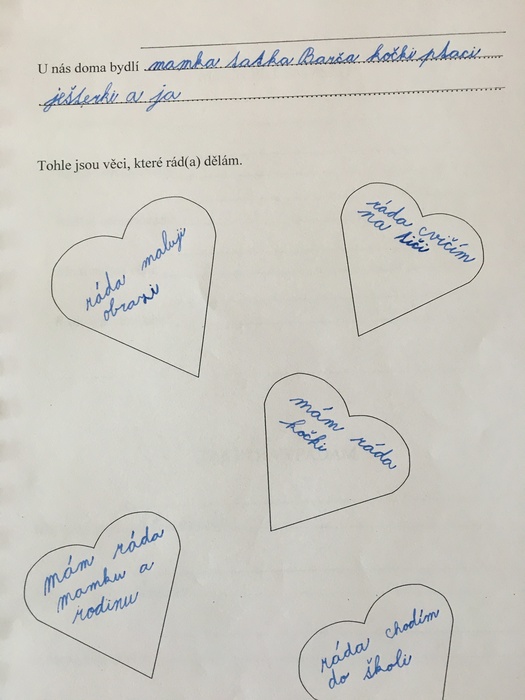 U nás doma bydlí mamka taťka Barča kočki ptaci
ješterki a ja
Tohle jsou věci, které rád(a) dělám.
ráda maluji
obrazi
ráda cvičím
na tiči
mám ráda
kočki
mám ráda
mamku a
rodinu
ráda chodím
do školi